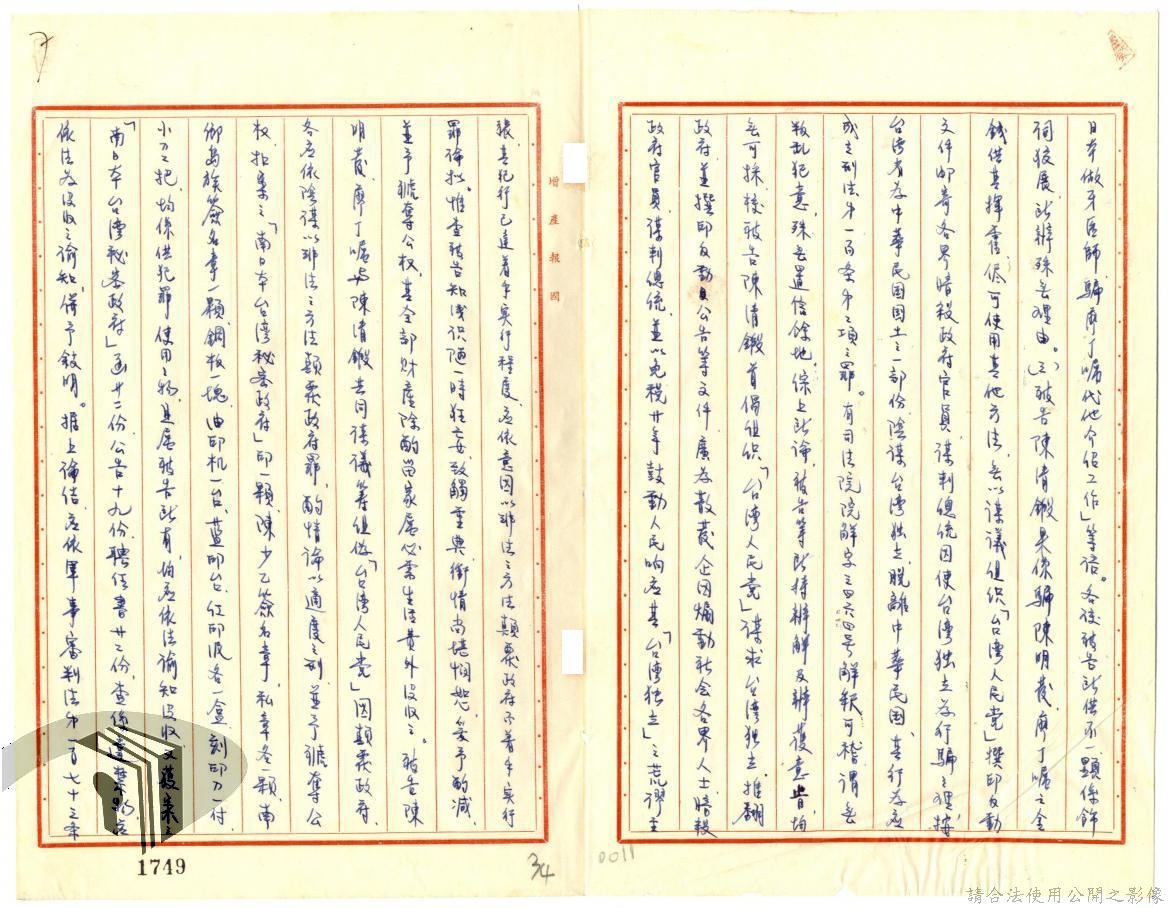 日本做牙医師，騙廖丁囑代他介绍工作」等语。各该被告所供不一，顯係飾
词狡展，所辨殊無理由。(三)被告陳清鍛果係騙陳明養廖丁囑之金
錢供其揮霍，儘可使用其他方法，無以謀議组织「台湾人民党」撰印反動
文件邮寄各界暗殺政府官員，谋刺總统因使台湾独立為行騙之理，按
台湾省為中華民国国土之一部份，陰谋台湾独立，脱離中華民国，其行為應
成立刑法第一百条第二項之罪。有司法院院解字三四六四号解釈可稽，謂無
叛乱犯意，殊無置信餘地，综上所論，被告等所持辨解及辨護意旨，均
無可採，核被告陳清鍛首倡组织「台湾人民党」谋求台湾独立，推翻
政府，並撰印反動公告等文件廣為散發，企图煽動社会各界人士暗殺
政府官員，谋刺總统，並以免税廿年鼓動人民响应其「台湾独立」之荒谬主
張，其犯行已達着手实行程度，应依意图以非法之方法顛覆政府而着手实行
罪論拟。惟查被告知浅识陋一時狂妄，致觸重典，衡情尚堪憫恕，爰予酌减
並予褫奪公权，其全部财產除酌留家屬必需生活費外没收之。被告陳
明養、廖丁囑与陳清鍛共同谋議筹组偽「台湾人民党」图顛覆政府，
各应依陰谋以非法之方法顛覆政府罪，酌情論以適度之刑，並予褫奪公
权，扣案之「南日本台湾秘密政府」印一顆，陳少乙簽名章，私章各顆，南
御島族簽名章一顆，鋼板一塊，油印机一台，蓝印台，红印泥各一盒，刻印刀一付，
小刀一把，均係供犯罪使用之物，且屬被告所有，均应依法谕知没收，又獲案之
「南日本台湾秘密政府」函廿二份，公告十九份，聘任書廿二份，查係違禁物，应
依法為没收之谕知，併予敍明。据上論结，应依軍事審判法第一百七十三条
增產報國
1749
34
0011
請合法使用公開之影像